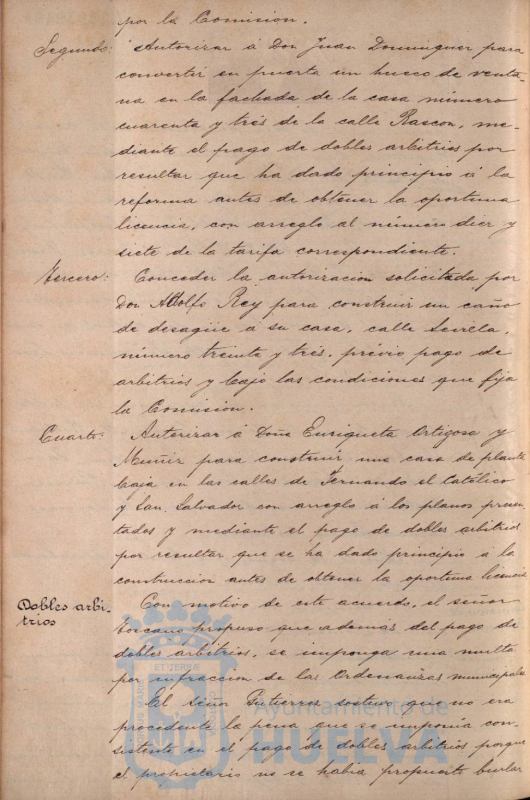 por la Comision.
Segundo: Autorizar á Don Juan Dominguez para
convertir en puerta un hueco de venta-
na en la fachada de la casa número
cuarenta y trés de la calle Rascon, me-
diante el pago de dobles arbitrios por
resultar que ha dado principio á la
reforma antes de obtener la oportuna
licencia, con arreglo al número diez y
siete de la tarifa correspondiente.
Tercero: Conceder la autorizacion solicitada por
Don Adolfo Rey para construir un caño
de desagüe á su casa, calle
número treinta y trés, prévio pago de
arbitrios y bajo las condiciones que fija
la Comision.
Cuarto: Autorizar á Doña Enriqueta Ortigosa y
Muñiz para construir una casa de planta
baja en las calles de Fernando el Católico
y San Salvador con arreglo á los planos presen-
tados y mediante el pago de dobles arbitrios
por resultar que se ha dado principio á la
construccion antes de obtener la oportuna licencia
Dobles arbi-
trios
Con motivo de este acuerdo, el señor
Toscano propuso que además del pago de
dobles arbitrios, se imponga una multa
por infraccion de las Ordenanzas municipales
El Señor Gutierrez sostuvo que no era
procedente la pena que se imponia con-
sistente en el pago de dobles arbitrios porque
el propietario no se habia propuesto burlar
Ayuntamiento de
HUELVA
PORTUS MARIS
ET TERRÆ
CUSTODIA